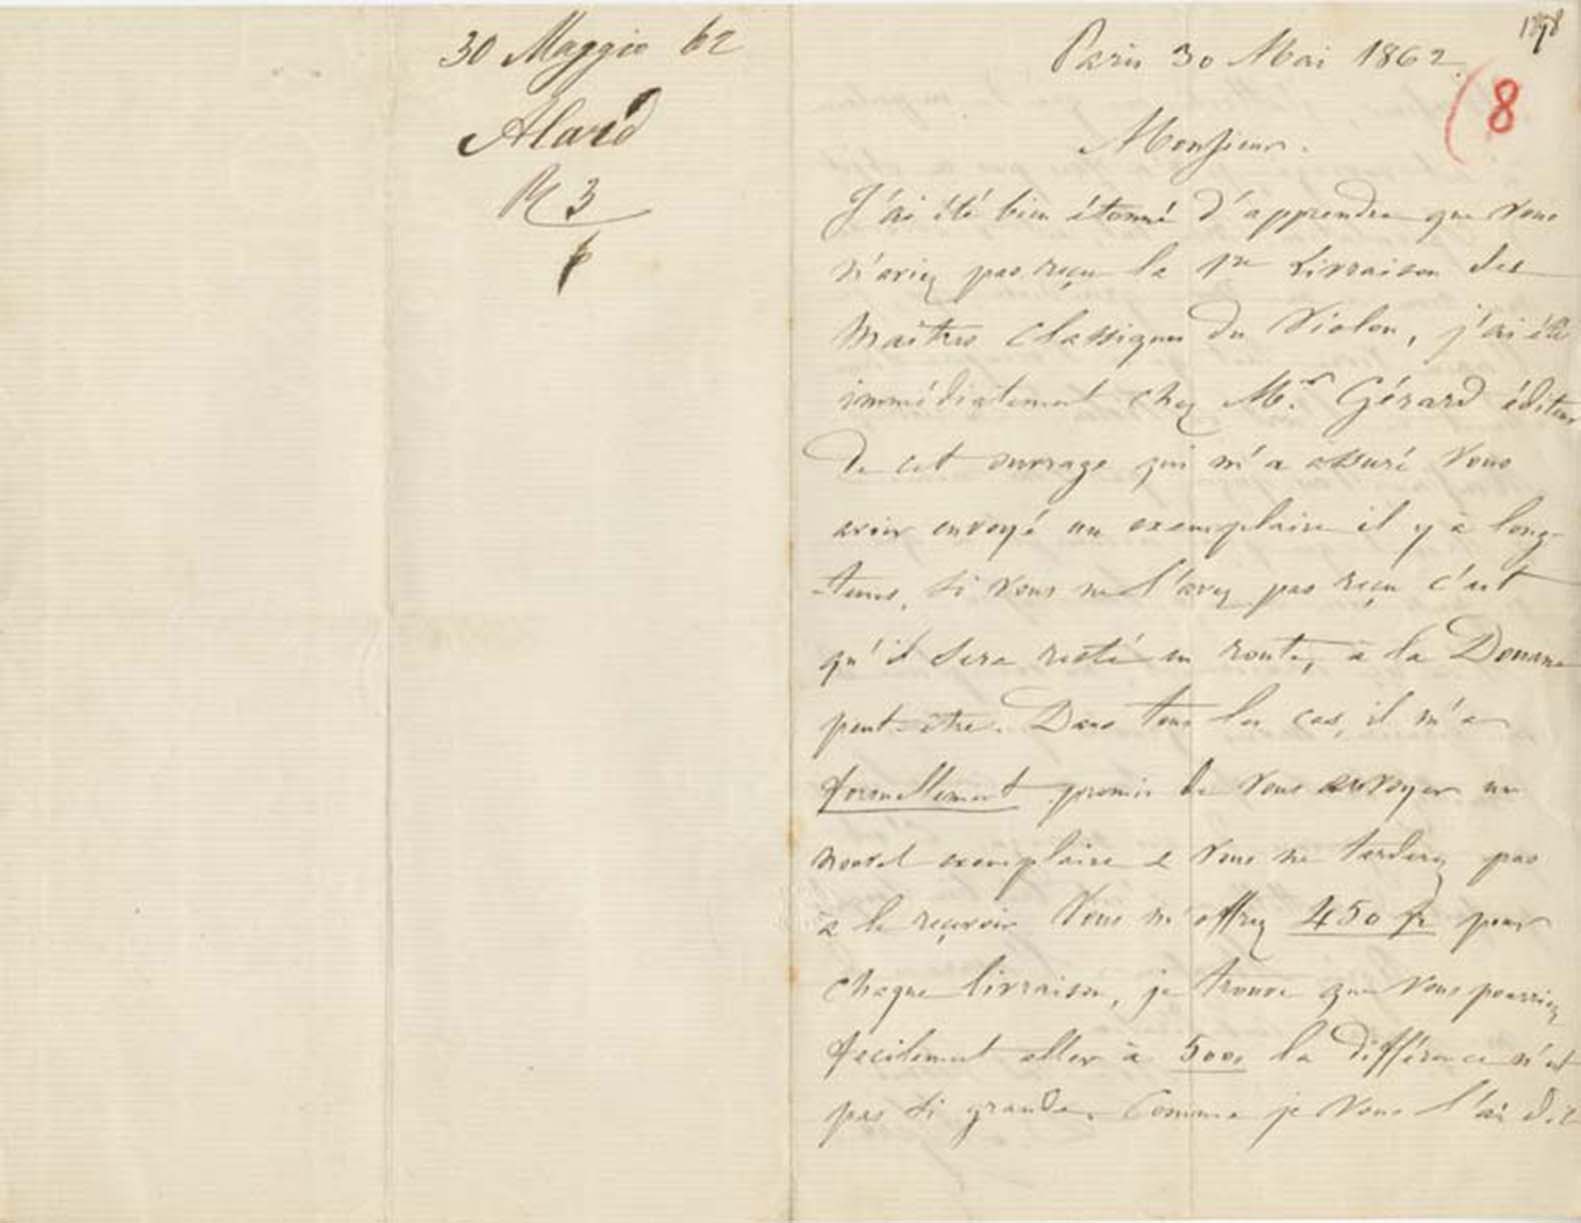 30 Maggio 62
Alard
R 3
6
1898
Paris 30 Mai 1862.
(8
Monsieur.
J'ai été bien étonné d'apprendre que vous
n'aviez pas reçu la 1re Livraison des
Maîtres Classiques du Violon, j'ai été
immédiatement chez Mr. Gérard éditeur
de cet ouvrage qui m'a assuré vous
avoir envoyé un exemplaire il y a long-
-tems, si vous ne l'avez pas reçu c'est
qu'il sera resté en route, à la Douane
peut-être. Dans tous les cas, il m'a
formellement promis de vous envoyer un
nouvel exemplaire & vous ne tarderez pas
a le reçevoir Vous m'offrez 450 fr pour
chaque livraison, je trouve que vous pourriez
facilement aller à 500, la différence n'est
pas si grande. Comme je vous l'ai dit